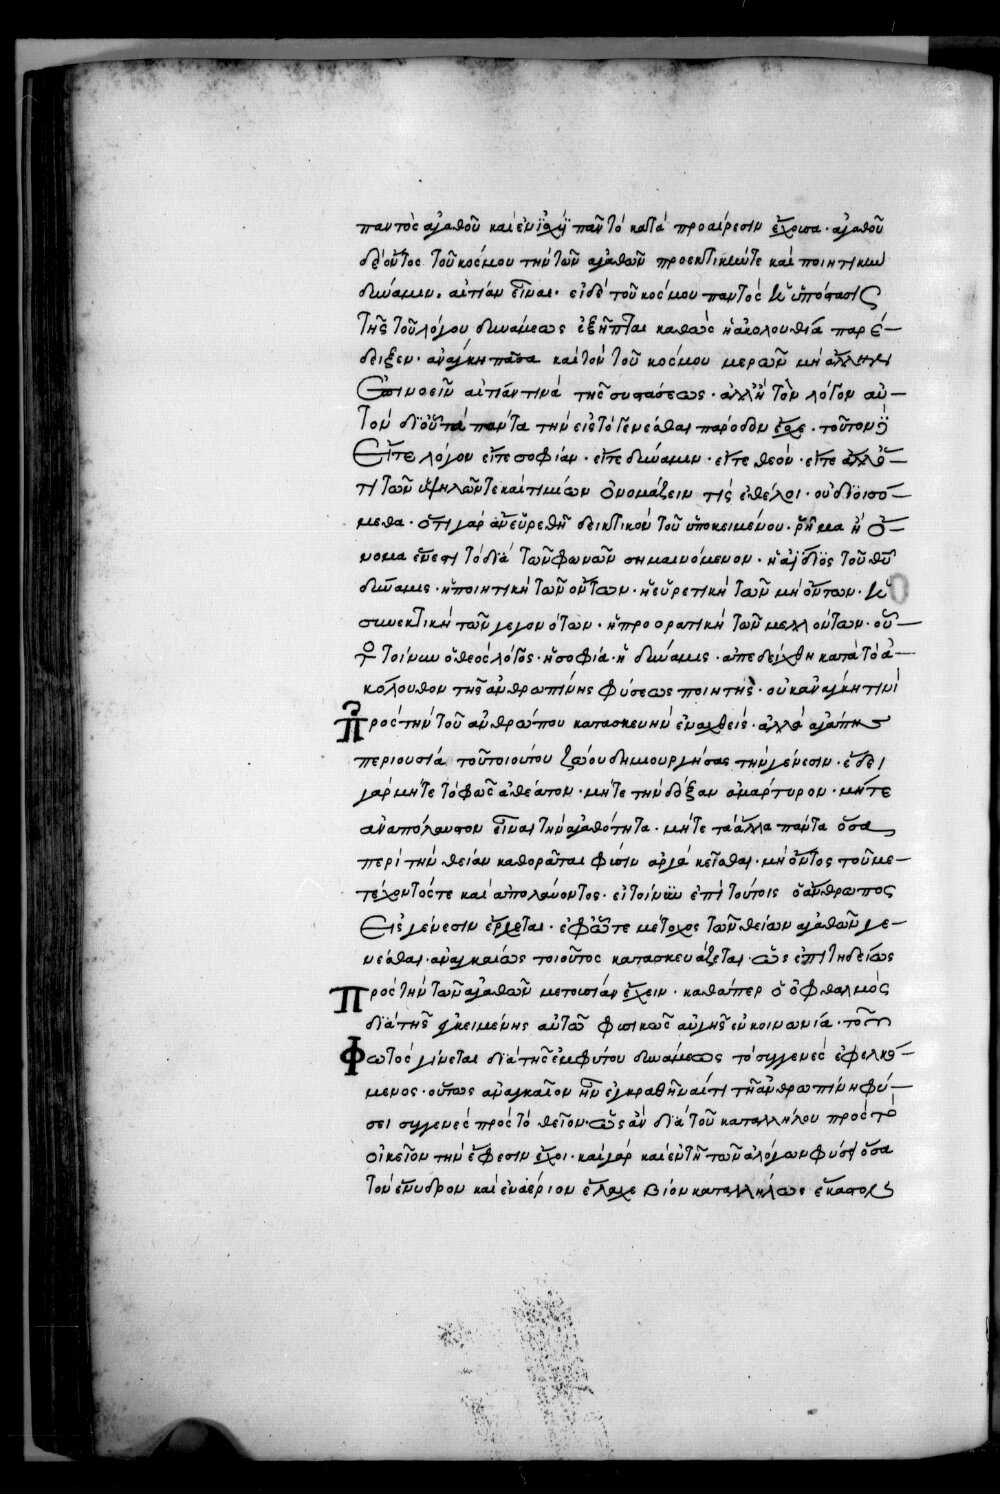 παντὸς ἀγαθοῦ καὶ ἐν ἰσχύϊ πᾶν τὸ κατὰ προαίρεσιν ἔχουσα· ἀγαθοῦ
δὲ ὄντος τοῦ κόσμου τὴν τῶν ἀγαθῶν προεκτικήν τε καὶ ποιητικὴν
δύναμιν. αἰτίαν εἶναι· εἰ δὲ τοῦ κόσμου παντὸς ἡ ὑπόστασις
τῆς τοῦ λόγου δυνάμεως ἐξῆπται καθὼς ἡ ἀκολουθία παρέ-
δειξεν· ἀνάγκη πᾶσα καὶ τῶν τοῦ κόσμου μερῶν μὴ ἄλλην
ἐπινοεῖν αἰτίαν τινὰ τῆς συστάσεως· ἀλλ' ἢ τὸν λόγον αὐ-
τὸν δι' οὗ τὰ πάντα τὴν εἰς τὸ γενέσθαι πάροδον ἔσχε· τοῦτον δ'
εἴτε λόγον εἴτε σοφίαν· εἴτε δύναμιν· εἴτε θεόν· εἴτε ἄλλο
τι τῶν ὑψηλῶν τε καὶ τιμίων ὀνομάζειν τις ἐθέλοι· οὐ διοισό-
μεθα· ὅτι γὰρ ἂν εὑρεθῇ δεικτικὸν τοῦ ὑποκειμένου· ῥῆμα ἢ ὄ-
νομα ἕν ἐστι τὸ διὰ τῶν φωνῶν σημαινόμενον· ἡ ἀΐδιος τοῦ θυ
δύναμις· ἡ ποιητικὴ τῶν ὄντων· ἡ εὑρετικὴ τῶν μὴ ὄντων· ἡ
συνεκτικὴ τῶν γεγονότων· ἡ προορατικὴ τῶν μελλόντων· οὗ-
τος τοίνυν ὁ θεὸς λόγος· ἡ σοφία· ἡ δύναμις· ἀπεδείχθη κατὰ τὸ ἀ-
κόλουθον τῆς ἀνθρωπίνης φύσεως ποιητής· οὐκ ἀνάγκῃ τινὶ
πρὸς τὴν τοῦ ἀνθρώπου κατασκευὴν ἐναχθείς· ἀλλὰ ἀγάπης
περιουσίᾳ τοῦ τοιούτου ζώου δημιουργήσας τὴν γένεσιν· ἔδει
γὰρ μήτε τὸ φῶς ἀθέατον· μήτε τὴν δόξαν ἀμάρτυρον· μήτε
ἀναπόλαυστον εἶναι τὴν ἀγαθότητα· μήτε τὰ ἄλλα πάντα ὅσα
περὶ τὴν θείαν καθορᾶται φύσιν ἀργὰ κεῖσθαι· μὴ ὄντος τοῦ με-
τέχοντός τε καὶ ἀπολαύοντος· εἰ τοίνυν ἐπὶ τούτοις ὁ ἄνθρωπος
εἰς γένεσιν ἔρχεται· ἐφ' ᾧ τε μέτοχος τῶν θείων ἀγαθῶν γε-
νέσθαι· ἀναγκαίως τοιοῦτος κατασκευάζεται· ὡς ἐπιτηδείως
πρὸς τὴν τῶν ἀγαθῶν μετουσίαν ἔχειν· καθάπερ ὁ ὀφθαλμὸς
διὰ τῆς ἐγκειμένης αὐτῷ φυσικῶς αὐγῆς ἐν κοινωνίᾳ· τοῦ
φωτὸς γίνεται διὰ τῆς ἐμφύτου δυνάμεως τὸ συγγενὲς ἐφελκό-
μενος· οὕτως ἀναγκαῖον ἦν ἐγκραθῆναί τι τῇ ἀνθρωπίνῃ φύ-
σει συγγενὲς πρὸς τὸ θεῖον· ὡς ἂν διὰ τοῦ καταλλήλου πρὸς τὸ
οἰκεῖον τὴν ἔφεσιν ἔχοι· καὶ γὰρ καὶ ἐν τῇ τῶν ἀλόγων φύσει ὅσα
τὸν ἔνυδρον καὶ ἐναέριον ἔλαχε βίον καταλλήλως ἕκαστον